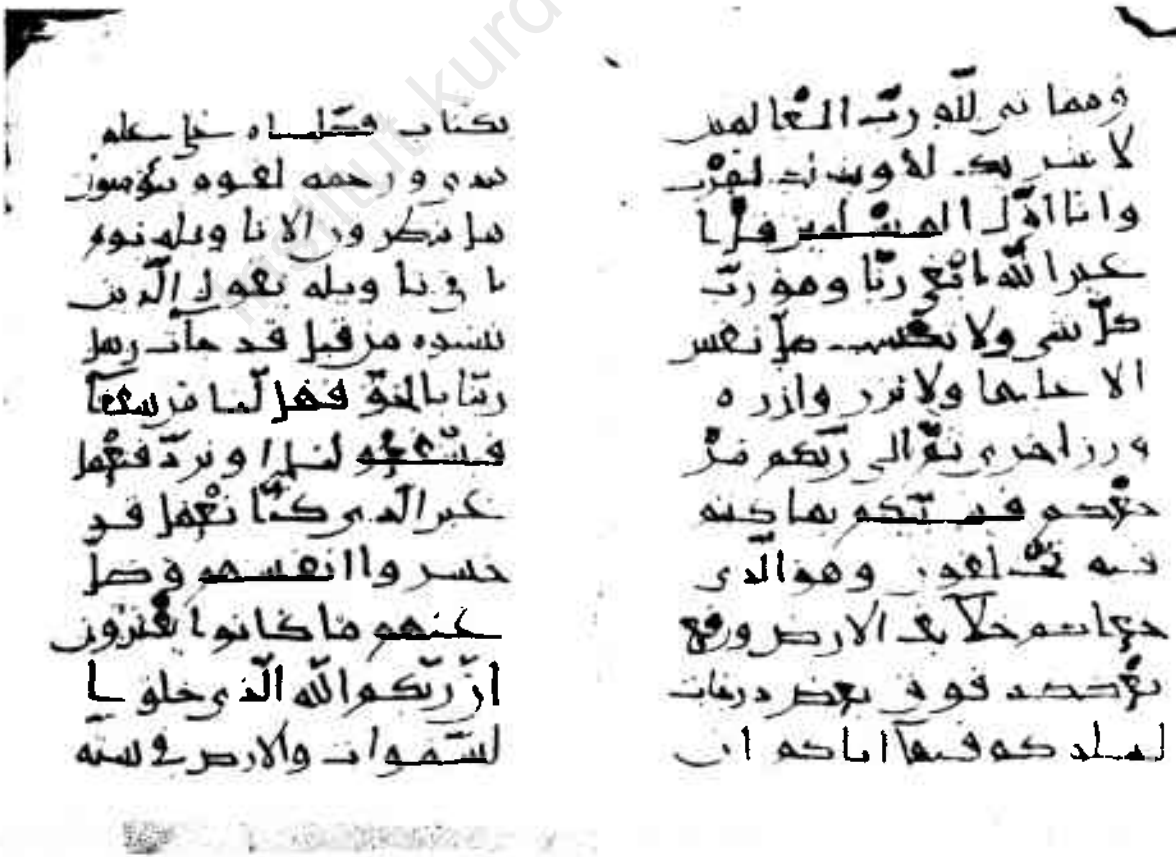 ومماتي لله ربّ العالمين
لا شريك له وبذلك امرت
وانا اوّل المسلمين قل ا
غير الله ابغي ربّا وهو ربّ
كلّ شي ولا تكسب كلّ نفس
الا عليها ولا تزر وازره
وزر اخرى ثمّ الى ربّكم مر
جعكم فينبّئكم بما كنتم
فيه تختلفون وهو الّذي
جعلكم خلائف الارض ورفع
بعضكم فوق بعض درجات
ليبلوكم فيما اتاكم ان
بكتاب فصّلناه على علم
هدى ورحمه لقوم يؤمنون
هل ينظرون الا تاويله يوم
ياتي تاويله يقول الّذين
نسوه من قبل قد جات رسل
ربّنا بالحقّ فهل لنا من شفعا
فيشفعو لنا او نردّ فنعمل
غير الّذي كنّا نعمل قد
خسروا انفسهم وضلّ
عنهم ما كانوا يفترون
انّ ربّكم الله الّذي خلق ا
لسّموات والارض في ستّه
Institut kurd